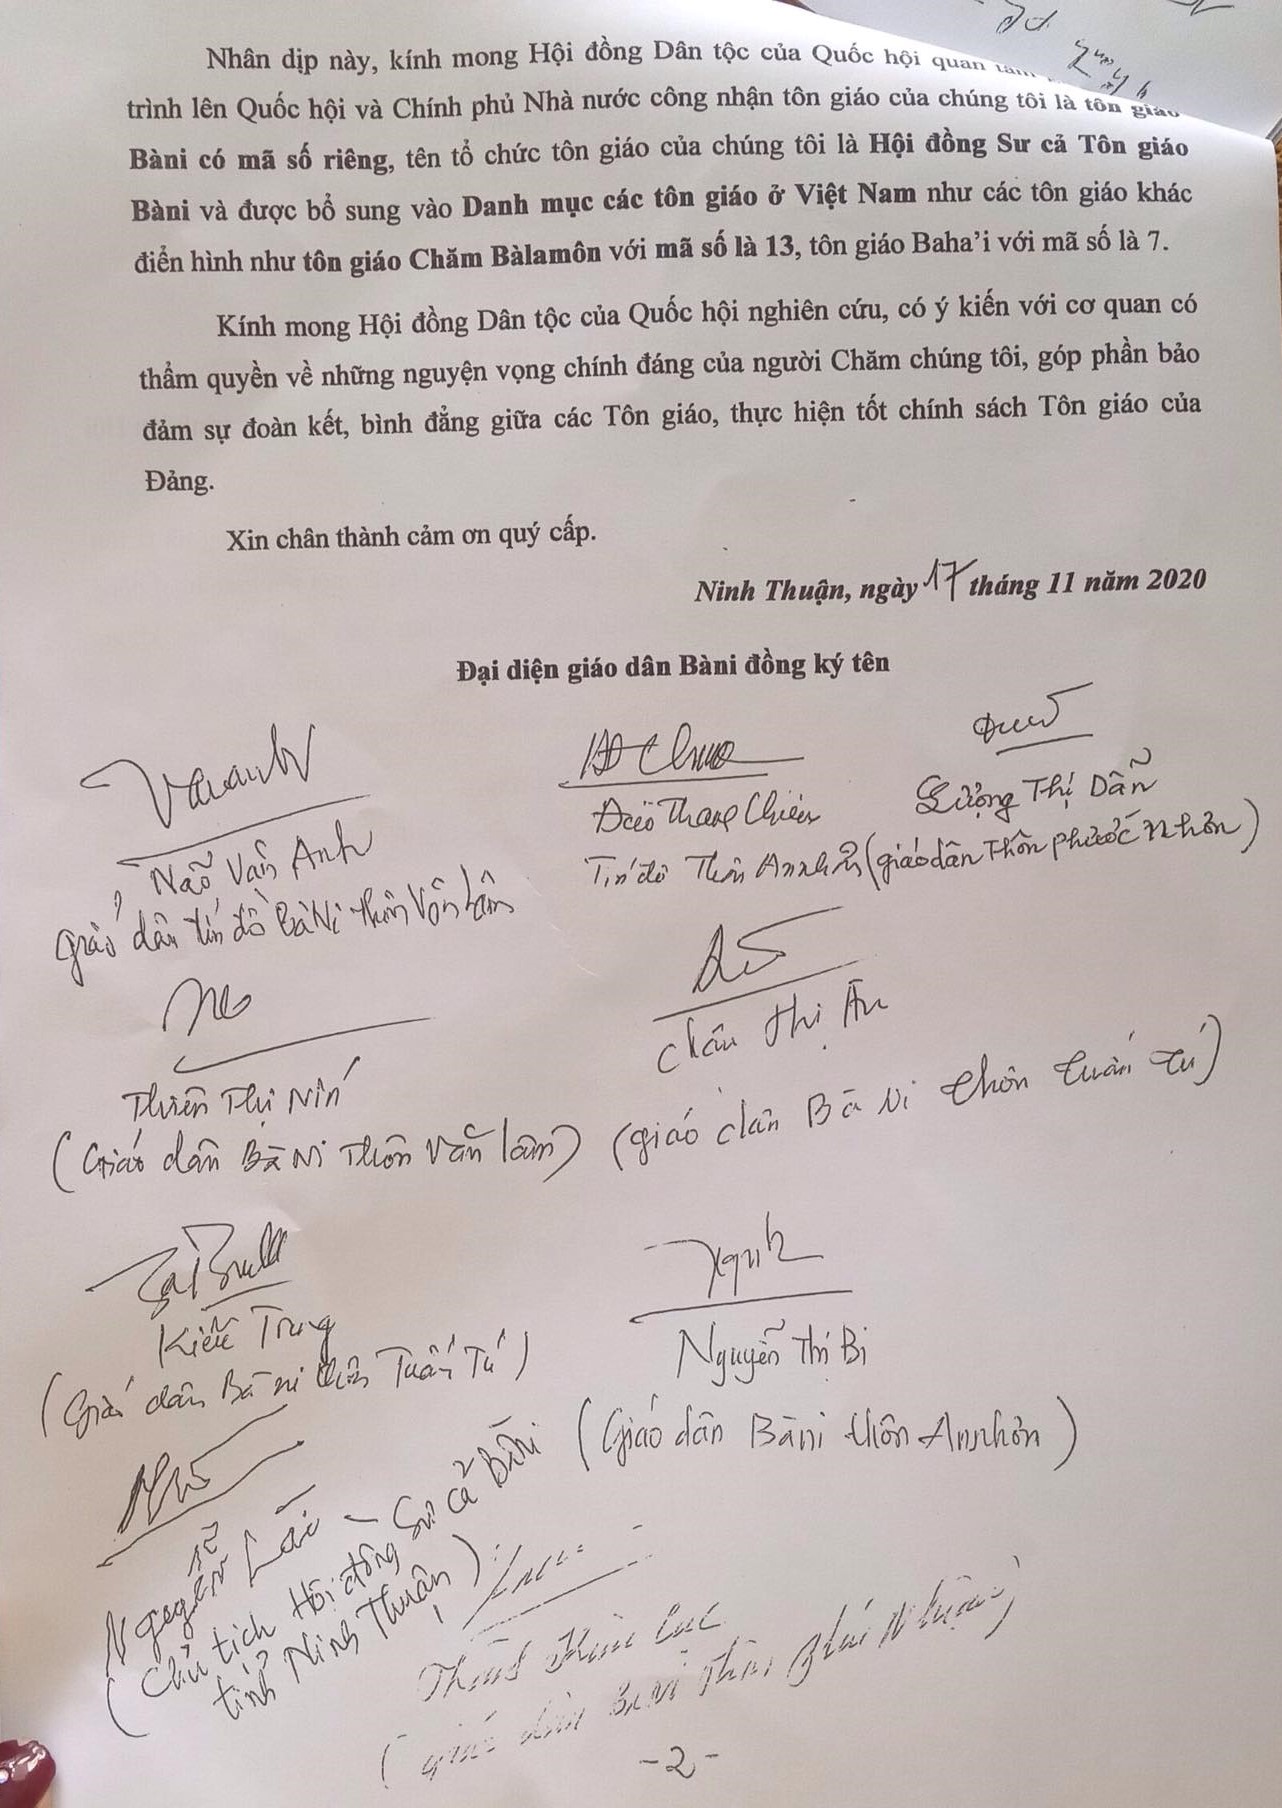 Nhân dịp này, kính mong Hội đồng Dân tộc của Quốc hội quan
trình lên Quốc hội và Chính phủ Nhà nước công nhận tôn giáo của chúng tôi là tôn giáo
Bàni có mã số riêng, tên tổ chức tôn giáo của chúng tôi là Hội đồng Sư cả Tôn giáo
Bàni và được bổ sung vào Danh mục các tôn giáo ở Việt Nam như các tôn giáo khác
điển hình như tôn giáo Chăm Bàlamôn với mã số là 13, tôn giáo Baha'i với mã số là 7.
Kính mong Hội đồng Dân tộc của Quốc hội nghiên cứu, có ý kiến với cơ quan có
thẩm quyền về những nguyện vọng chính đáng của người Chăm chúng tôi, góp phần bảo
đảm sự đoàn kết, bình đẳng giữa các Tôn giáo, thực hiện tốt chính sách Tôn giáo của
Đảng.
Xin chân thành cảm ơn quý cấp.
Ninh Thuận, ngày 17 tháng 11 năm 2020
Đại diện giáo dân Bàni đồng ký tên
Vananh
Não Văn Anh
giáo dân tín đồ BàNi thôn Văn Lâm
Lượng Thị Dẫn
(giáo dân Thôn phước Nhơn)
Châu Thị Ân
(giáo dân Bà Ni thôn tuấn tú)
Thiên Thị Nín
(Giáo dân Bà Ni Thôn Văn lâm)
Kiều Trung
(Giáo dân Bà ni thôn Tuấn Tú)
Nguyễn Thị Bi
(Giáo dân Bàni thôn An nhơn)
(Chủ tịch Hội đồng Sư cả Bàni
tỉnh Ninh Thuận)
-2-